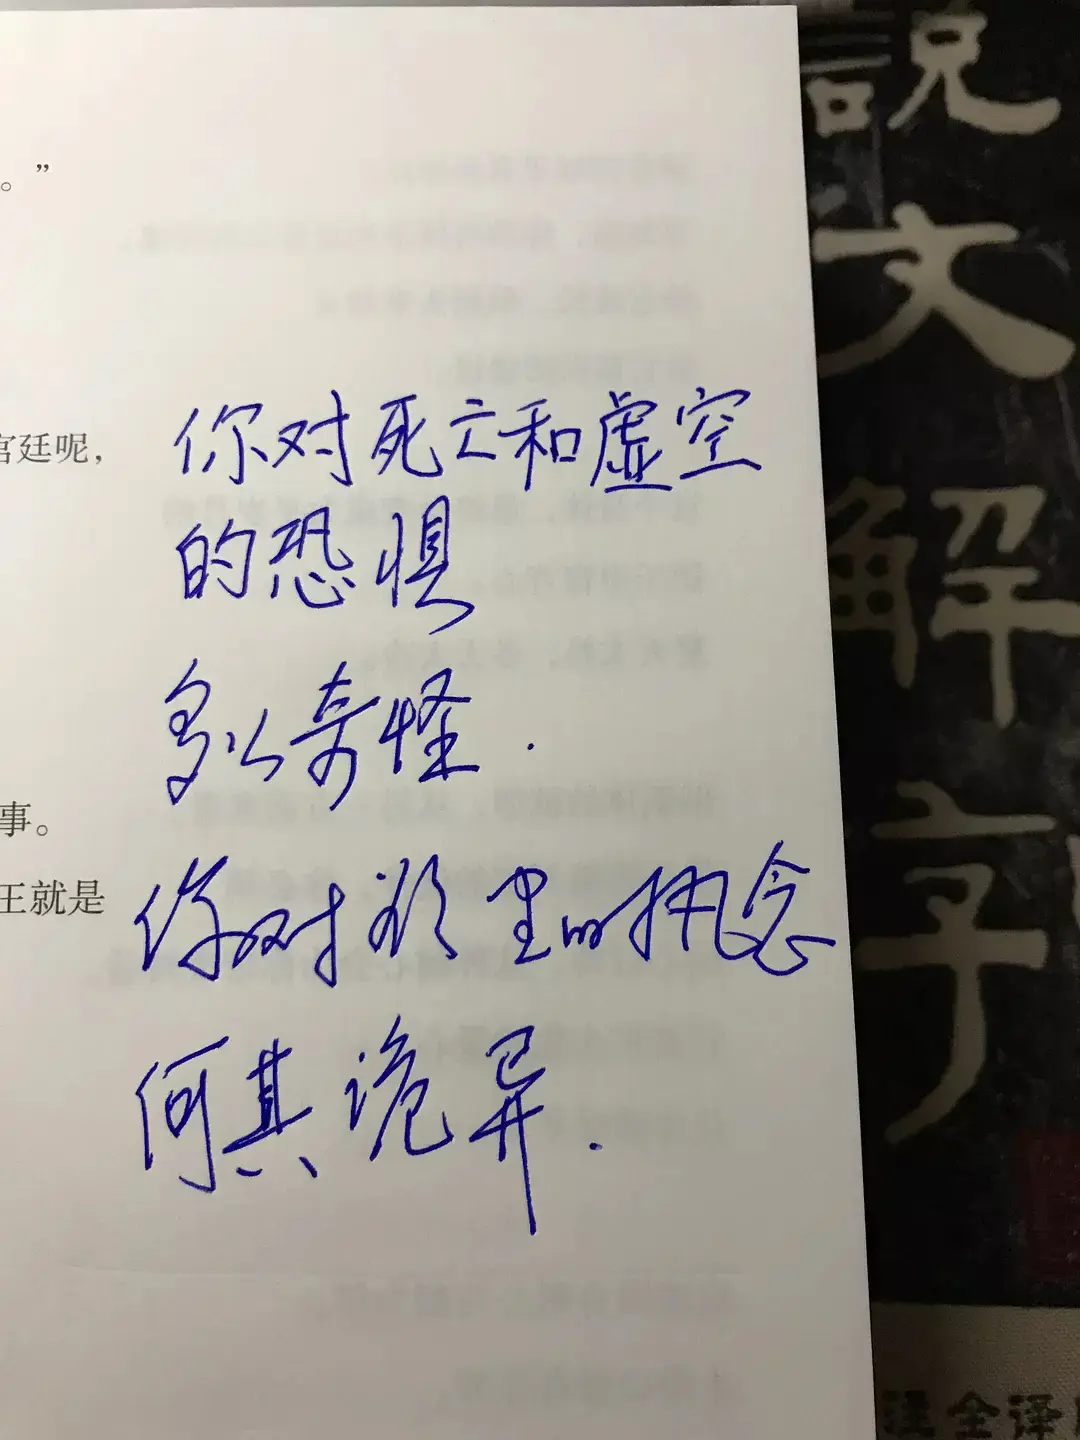 。”
宫廷呢，
你对死亡和虚空
的恐惧
多么奇怪.
事。
王就是
你对的执念
何其诡异.
説文解字
全译